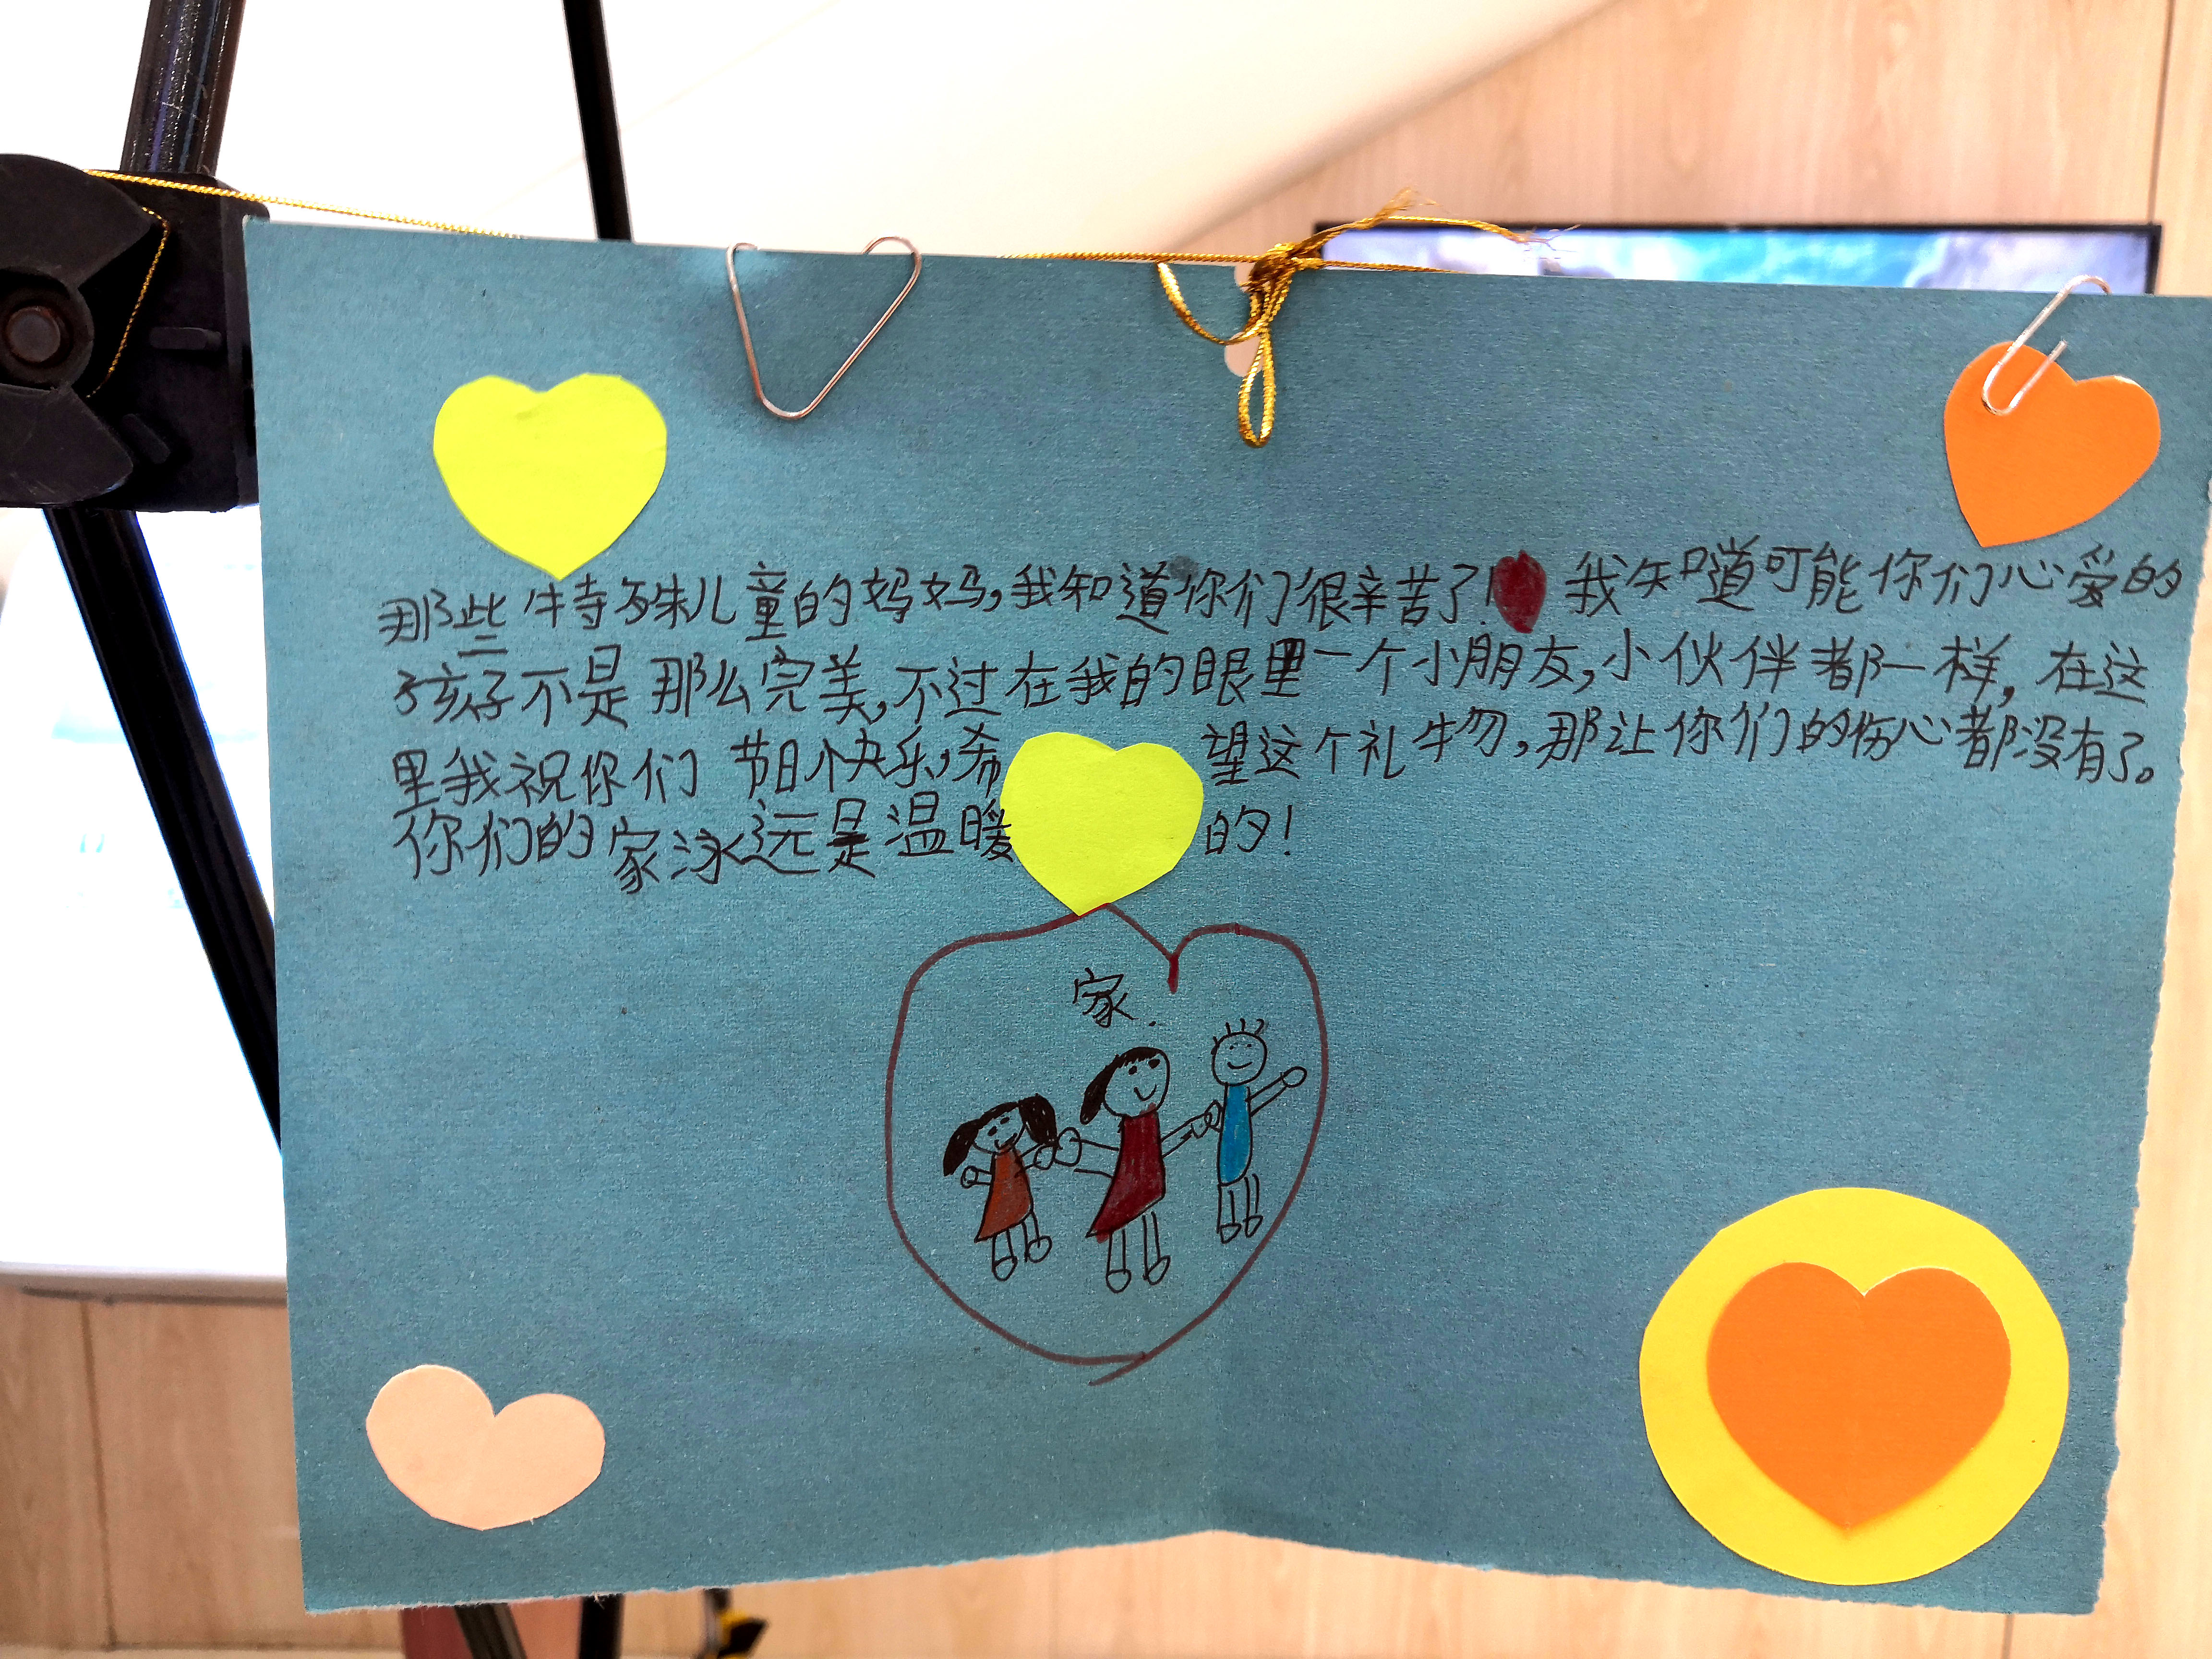 那些特殊儿童的妈妈,我知道你们很辛苦了!我知道可能你们心爱的
孩子不是那么完美,不过在我的眼里一个小朋友,小伙伴都一样,在这
里我祝你们节日快乐,希望这个礼物,那让你们的伤心都没有了。
你们的家泳远是温暖的!
家